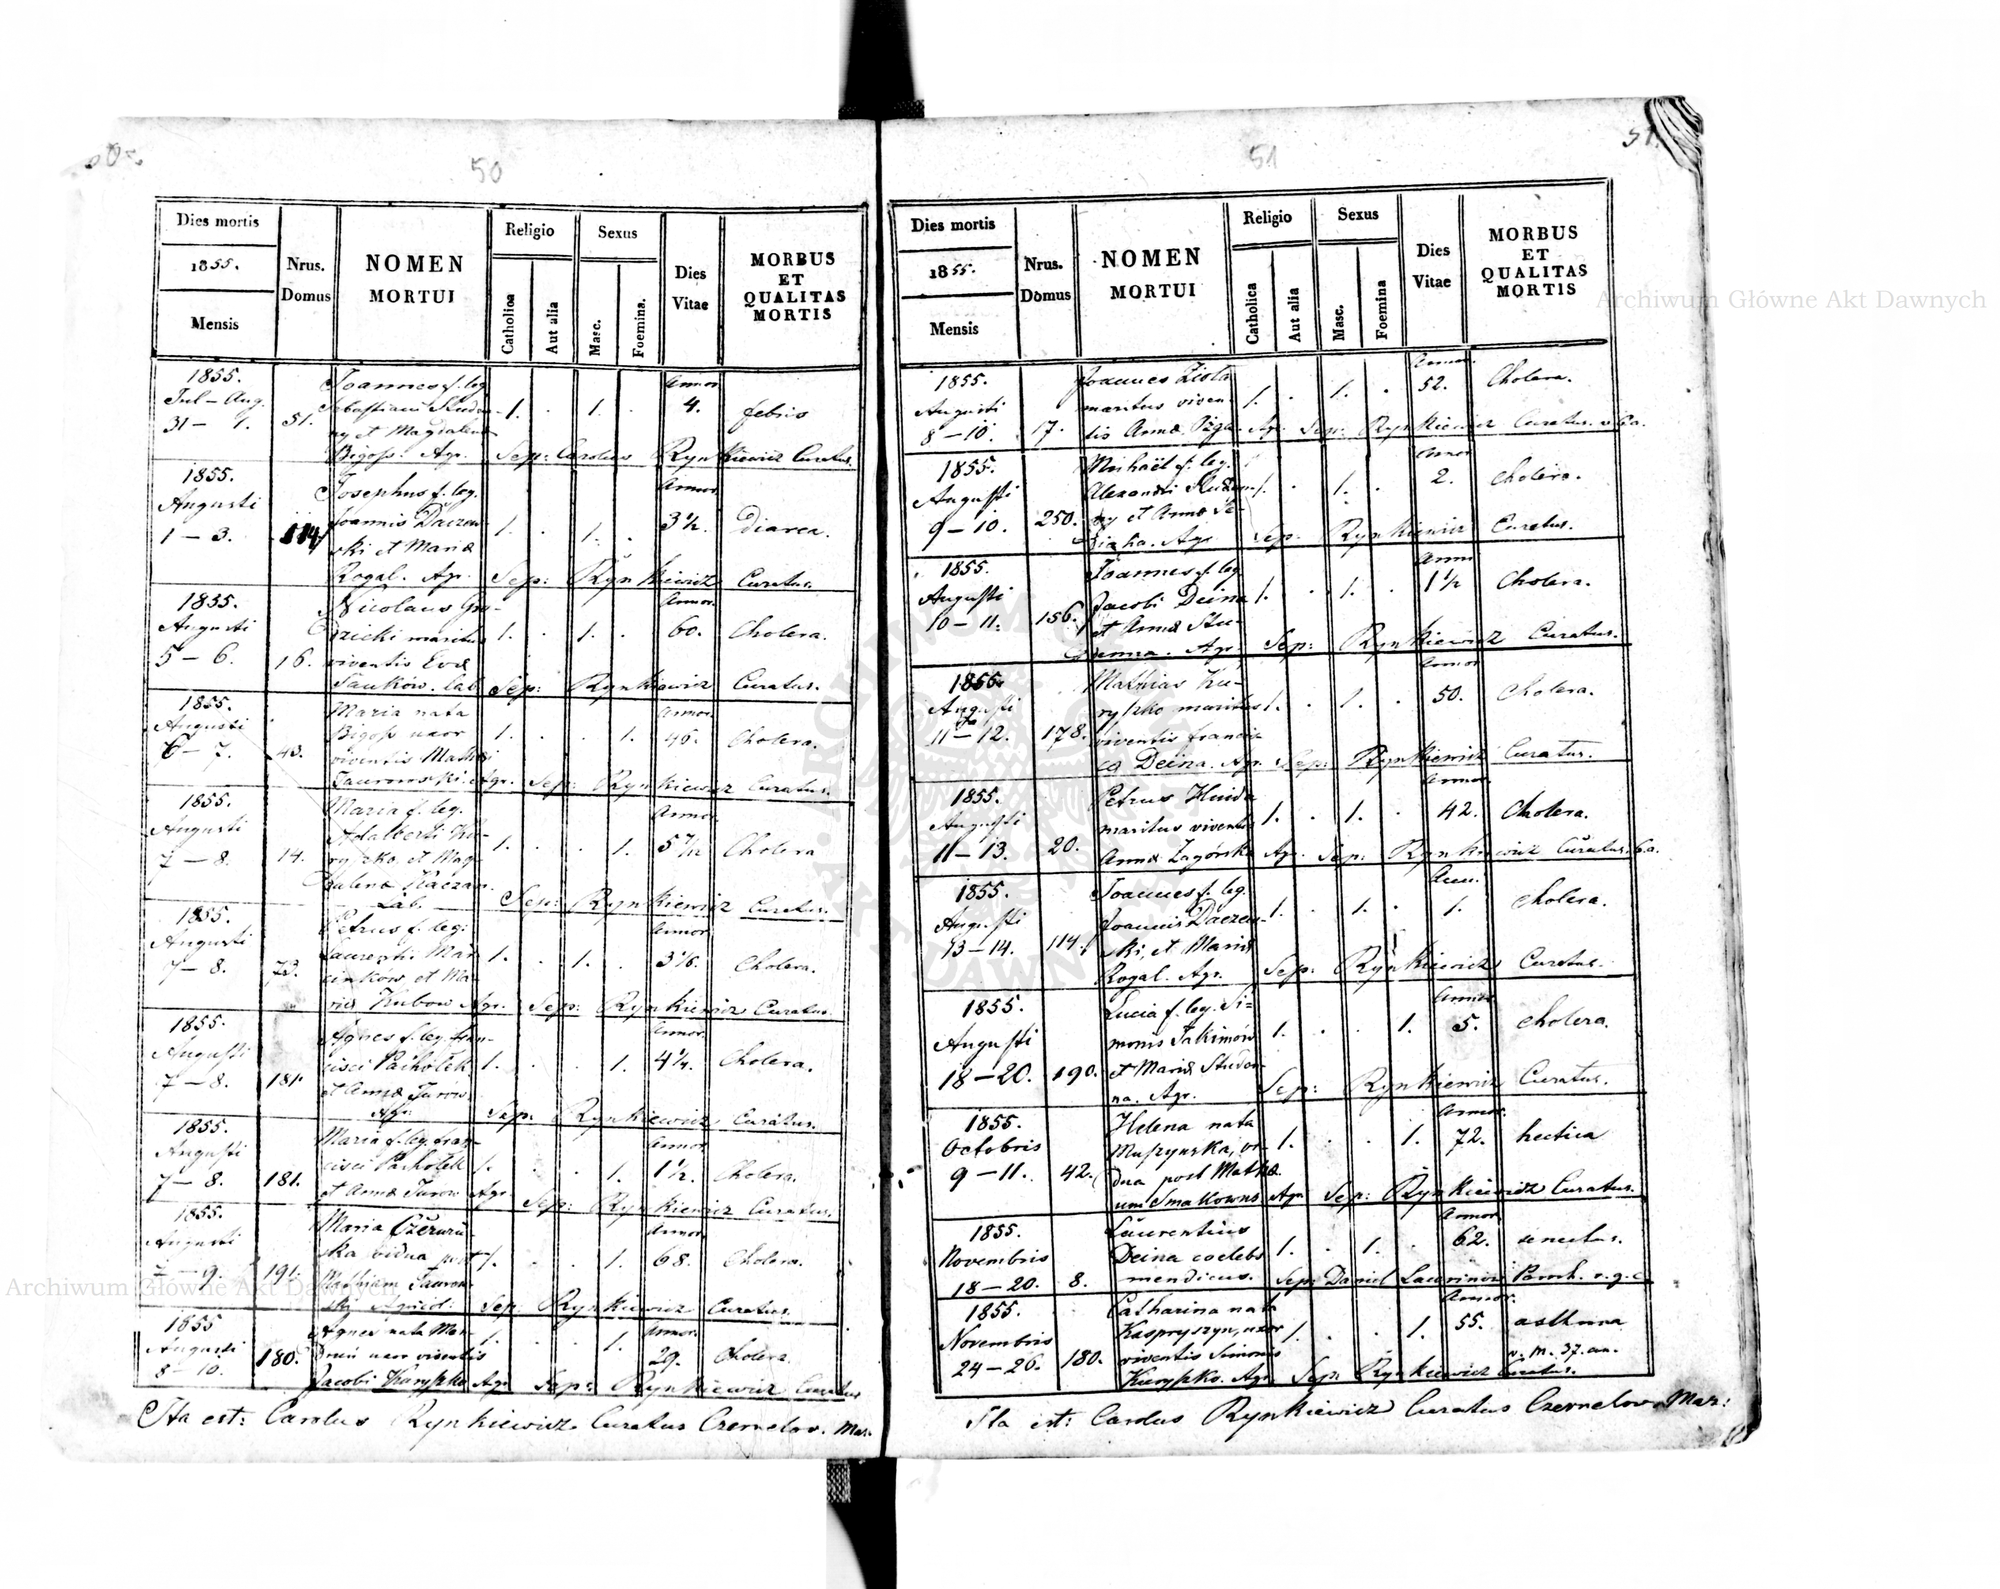 50
Dies mortis
1855.
Mensis
Nrus.
Domus
NOMEN
MORTUI
Religio
Catholica
Aut alia
Sexus
Masc.
Foemina.
Dies
Vitae
MORBUS
ET
QUALITAS
MORTIS
1855. Joannes f. leg. Annor.
Jul – Aug. Sebastiani 1. . 1. . 4. febris
31 – 1. 51. et Magdalena
Bigoss. Agr. Sep: Carolus Rynkiewicz Curatus.
1855. Josephus f. leg. Annor.
Augusti Joannis 1. . 1. . 3½. Diarea.
1 – 3. 114 ski et Mariæ
Rogal. Agr. Sep: Rynkiewicz Curatus.
1855. Nicolaus Gro- Annor.
Augusti dzicki maritus 1. . 1. . 60. Cholera.
5 – 6. 16. viventis Evæ
Sep: Rynkiewicz Curatus.
1855. Maria nata Annor.
Augusti Bigoss uxor 1. . . 1. 46. Cholera.
6 – 7. 43. viventis
Agr. Sep: Rynkiewicz Curatus.
1855. Maria f. leg. Annor.
Augusti Adalberti Ku- 1. . . 1. 5 7/12 Cholera
7 – 8. 14. ryszko et Mag-
dalenæ Kaczan.
Lab. Sep: Rynkiewicz Curatus.
1855. Petrus f. leg: Annor
Augusti Laurenti Mar- 1. . 1. . Cholera.
7 – 8. 73. cinkow et Ma-
riæ Agr. Sep: Rynkiewicz Curatus.
1855. Agnes f. leg. fran- Annor.
Augusti cisci Pachołek 1. . . 1. 4¼. Cholera.
7 – 8. 181. et Annæ Turów
Agr. Sep: Rynkiewicz Curatus.
1855. Maria f. leg. fran- Annor.
Augusti cisci Pachołek 1. . . 1. 1½. Cholera.
7 – 8. 181. et Annæ Turow Agr.
Sep: Rynkiewicz Curatus.
1855. Maria Annor.
Augusti ska vidua post 1. . . 1. 68. Cholera.
7 – 9. 191. Mathiam
Sep: Rynkiewicz Curatus.
1855 Agnes nata Annor.
Augusti uxor viventis 1. . . 1. 29. Cholera.
8 – 10. 180. Jacobi Kuryszko Agr. Sep: Rynkiewicz Curatus
Ita est: Carolus Rynkiewicz Curatus Czernelov. Maz.
51
51.
Dies mortis
1855.
Mensis
Nrus.
Domus
NOMEN
MORTUI
Religio
Catholica
Aut alia
Sexus
Masc.
Foemina
Dies
Vitae
MORBUS
ET
QUALITAS
MORTIS
1855. Joannes Annor.
Augusti maritus viven- 1. . 1. . 52. Cholera.
8 – 10. 17. tis Annæ Agr. Sep: Rynkiewicz Curatus.
1855. Michaël f. leg. Annor
Augusti Alexandri 1. . 1. . 2. Cholera.
9 – 10. 250. et Annæ
Agr. Sep: Rynkiewicz Curatus.
1855. Joannes f. leg. Anni
Augusti Jacobi Deina 1. . 1. . 1½ Cholera.
10 – 11. 156. et Annæ Stu-
Agr. Sep: Rynkiewicz Curatus.
1855 Mathias Ku- Annor
Augusti ryszko maritus 1. . 1. . 50. Cholera.
11 – 12. 178. viventis francis-
cæ Deina. Agr. Sep: Rynkiewicz Curatus.
1855. Petrus Annor.
Augusti maritus viventis 1. . 1. . 42. Cholera.
11 – 13. 20. Annæ Zagórska Agr. Sep: Rynkiewicz Curatus.
1855. Joannes f. leg. Ann.
Augusti Joannis 1. . 1. . 1. Cholera.
13 – 14. 114. ski, et Mariæ
Rogal. Agr. Sep: Rynkiewicz Curatus.
1855. Lucia f. leg. Si- Annor
Augusti monis Jakimów 1. . . 1. 5. Cholera.
18 – 20. 190. et Mariæ Studen-
na. Agr. Sep: Rynkiewicz Curatus.
1855. Helena nata Annor.
Octobris Muszynska, vi- 1. . . 1. 72. hectica
9 – 11. 42. dua post Mathæ-
um Agr. Sep: Rynkiewicz Curatus.
1855. Laurentius Annor
Novembris Deina coelebs 1. . 1. . 62. senectus.
18 – 20. 8. mendicus. Sep: Daniel Paroch. r. g. c.
1855. Catharina nata Annor.
Novembris Kaspryszyn, uxor 1. . . 1. 55. asthma
24 – 26. 180. viventis Simonis v. M. 37. an.
Kuryszko. Agr. Sep: Rynkiewicz Curatus.
Ita est: Carolus Rynkiewicz Curatus Czernelov. Maz:
Archiwum Główne Akt Dawnych
Archiwum Główne Akt Dawnych